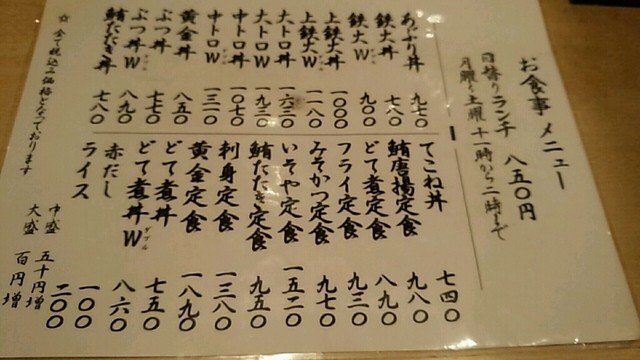 お食事メニュー
日替りランチ 八五〇円
月曜〜土曜 十一時から二時まで
あぶり丼 九七〇
鉄火丼 七八〇
鉄火W 九〇〇
上鉄火丼 一〇〇〇
上鉄火Wダブル 一一八〇
大トロ丼 一六三〇
大トロWダブル 一九三〇
中トロ丼 一〇七〇
中トロWダブル 一三一〇
黄金丼 八五〇
ぶつ丼 七七〇
ぶつ丼Wダブル 八九〇
鮪たたき丼 七八〇
てこね丼 七四〇
鮪唐揚定食 九八〇
どて煮定食 八九〇
フライ定食 九三〇
みそかつ定食 九七〇
いそや定食 一五二〇
鮪たたき定食 九五〇
刺身定食 一三八〇
黄金定食 一八九〇
どて煮丼 七五〇
どて煮丼Wダブル 八六〇
赤だし 一〇〇
ライス 二〇〇
中盛 五十円増
大盛 百円増
☆ 全て税込み価格となっております